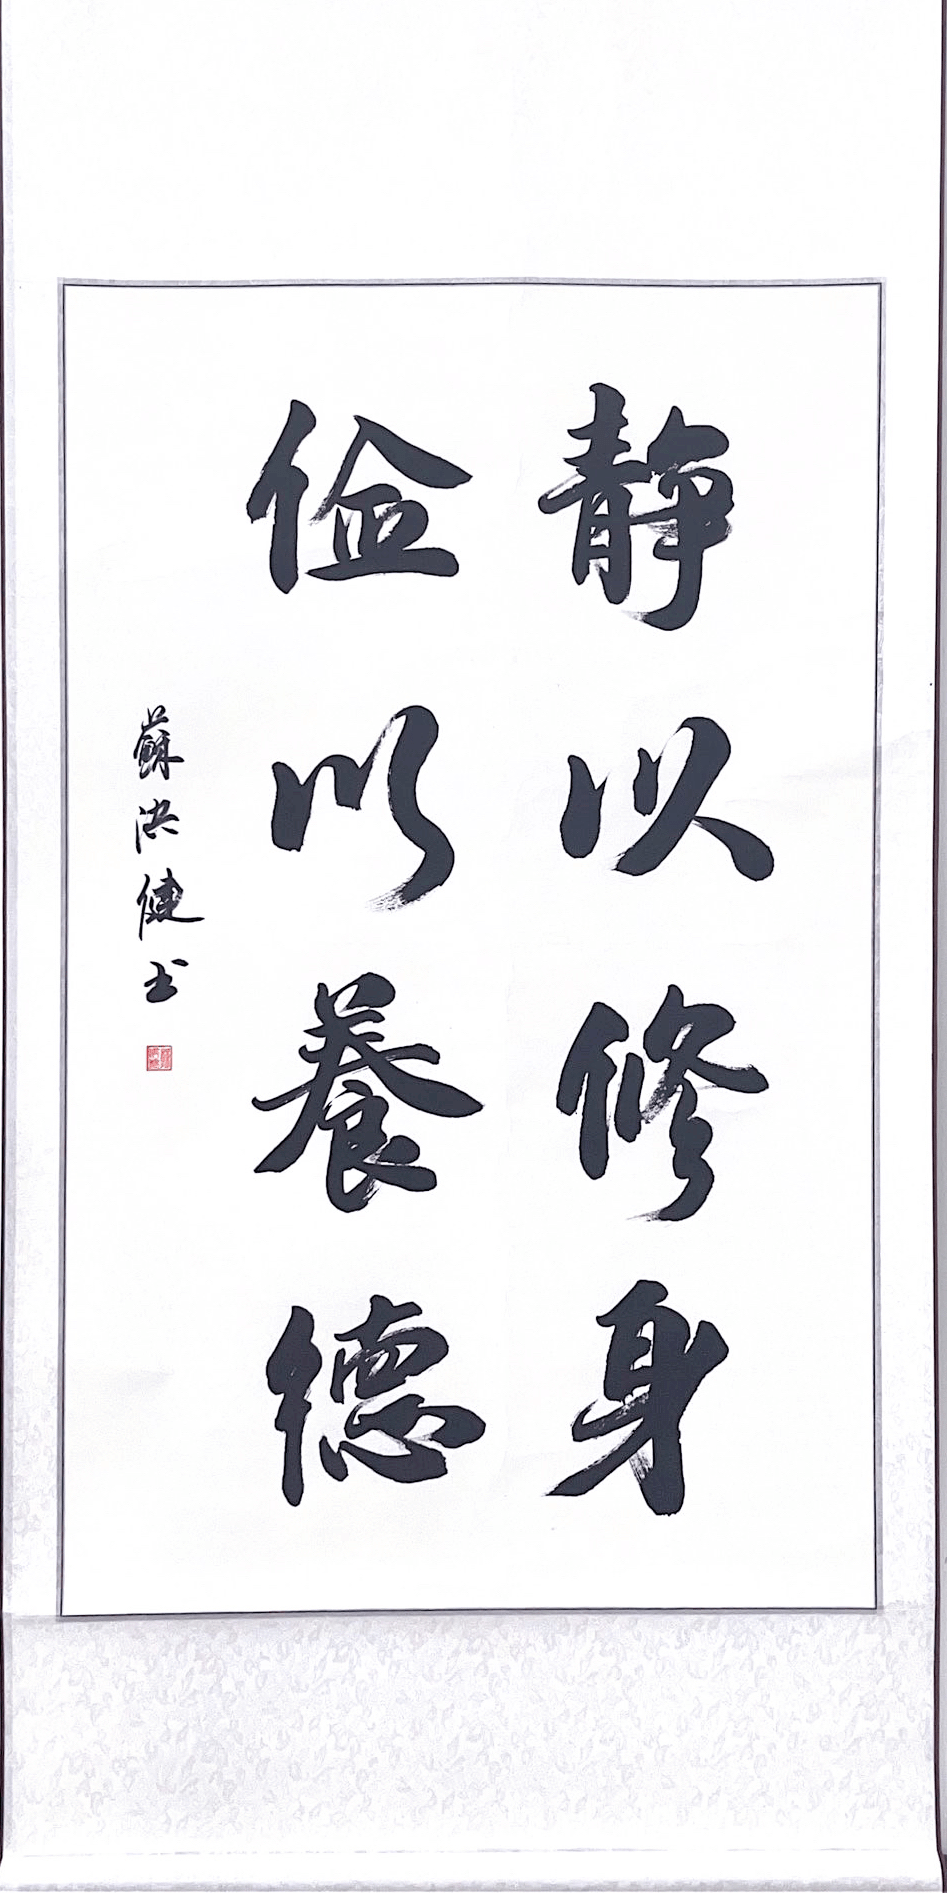 静以修身
儉以養德
蘇洪健书